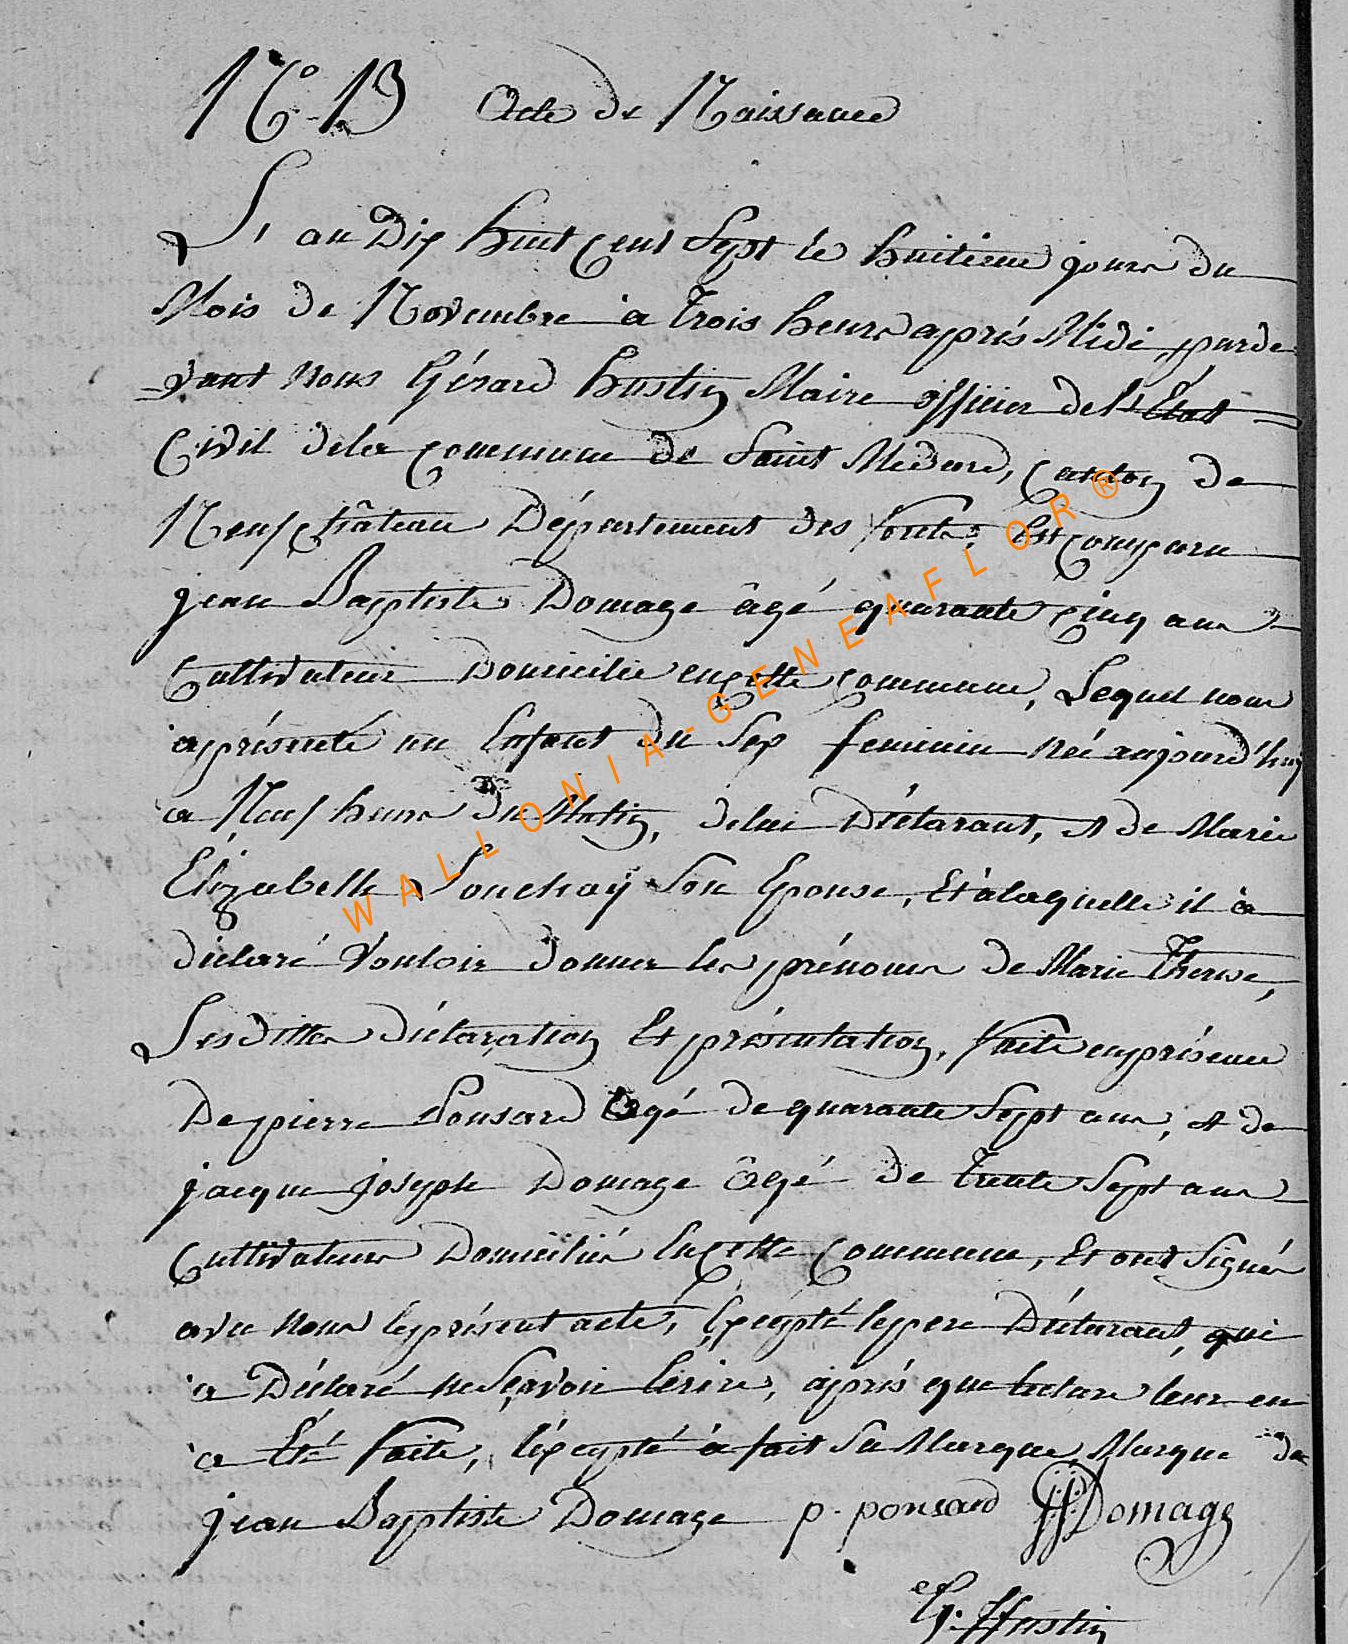 N.º 13 Acte de Naissance
L'an Dix huit cent Sept le huitieme jours du
Mois de Novembre à trois heurs après Midi, parde
vant Nous Gérard hustin Maire officier de l'Etat
Civil dela commune de Saint Médard, Canton de
Neufchâteau Département des forêts, Est comparu
jean Baptiste Domage âgé quarante cinq ans
Cultivateur Domicilié en cette commune, Lequel nous
a présenté un Enfant du Sex feminin Née aujourd'huy
a Neuf heurs du Matin, delui Déclarant, et de Marie
Élizabeth Ponchaÿ Son Epouse, Et alaquelle il à
déclaré Vouloir donner les prénoms de Marie Therese,
Lesdittes déclaration Et présentation, faite en présence
De pierre Ponsard âgé de quarante Sept ans, et de
jacque joseph Domage âgé de trente Sept ans
Cultivateurs Domiciliés En cette Commune, Et ont Signés
avec Nous le présent acte, Excepté le pere Déclarant, qui
a Déclaré ne Savoir Ecrire, après que lecture leur en
a Eté faite, l'éxcepté à fait Sa Marque, Marque de
jean Baptiste Domage p. ponsard JJ Domage
G. Hustin
WALLONIA-GENEAFLOR®